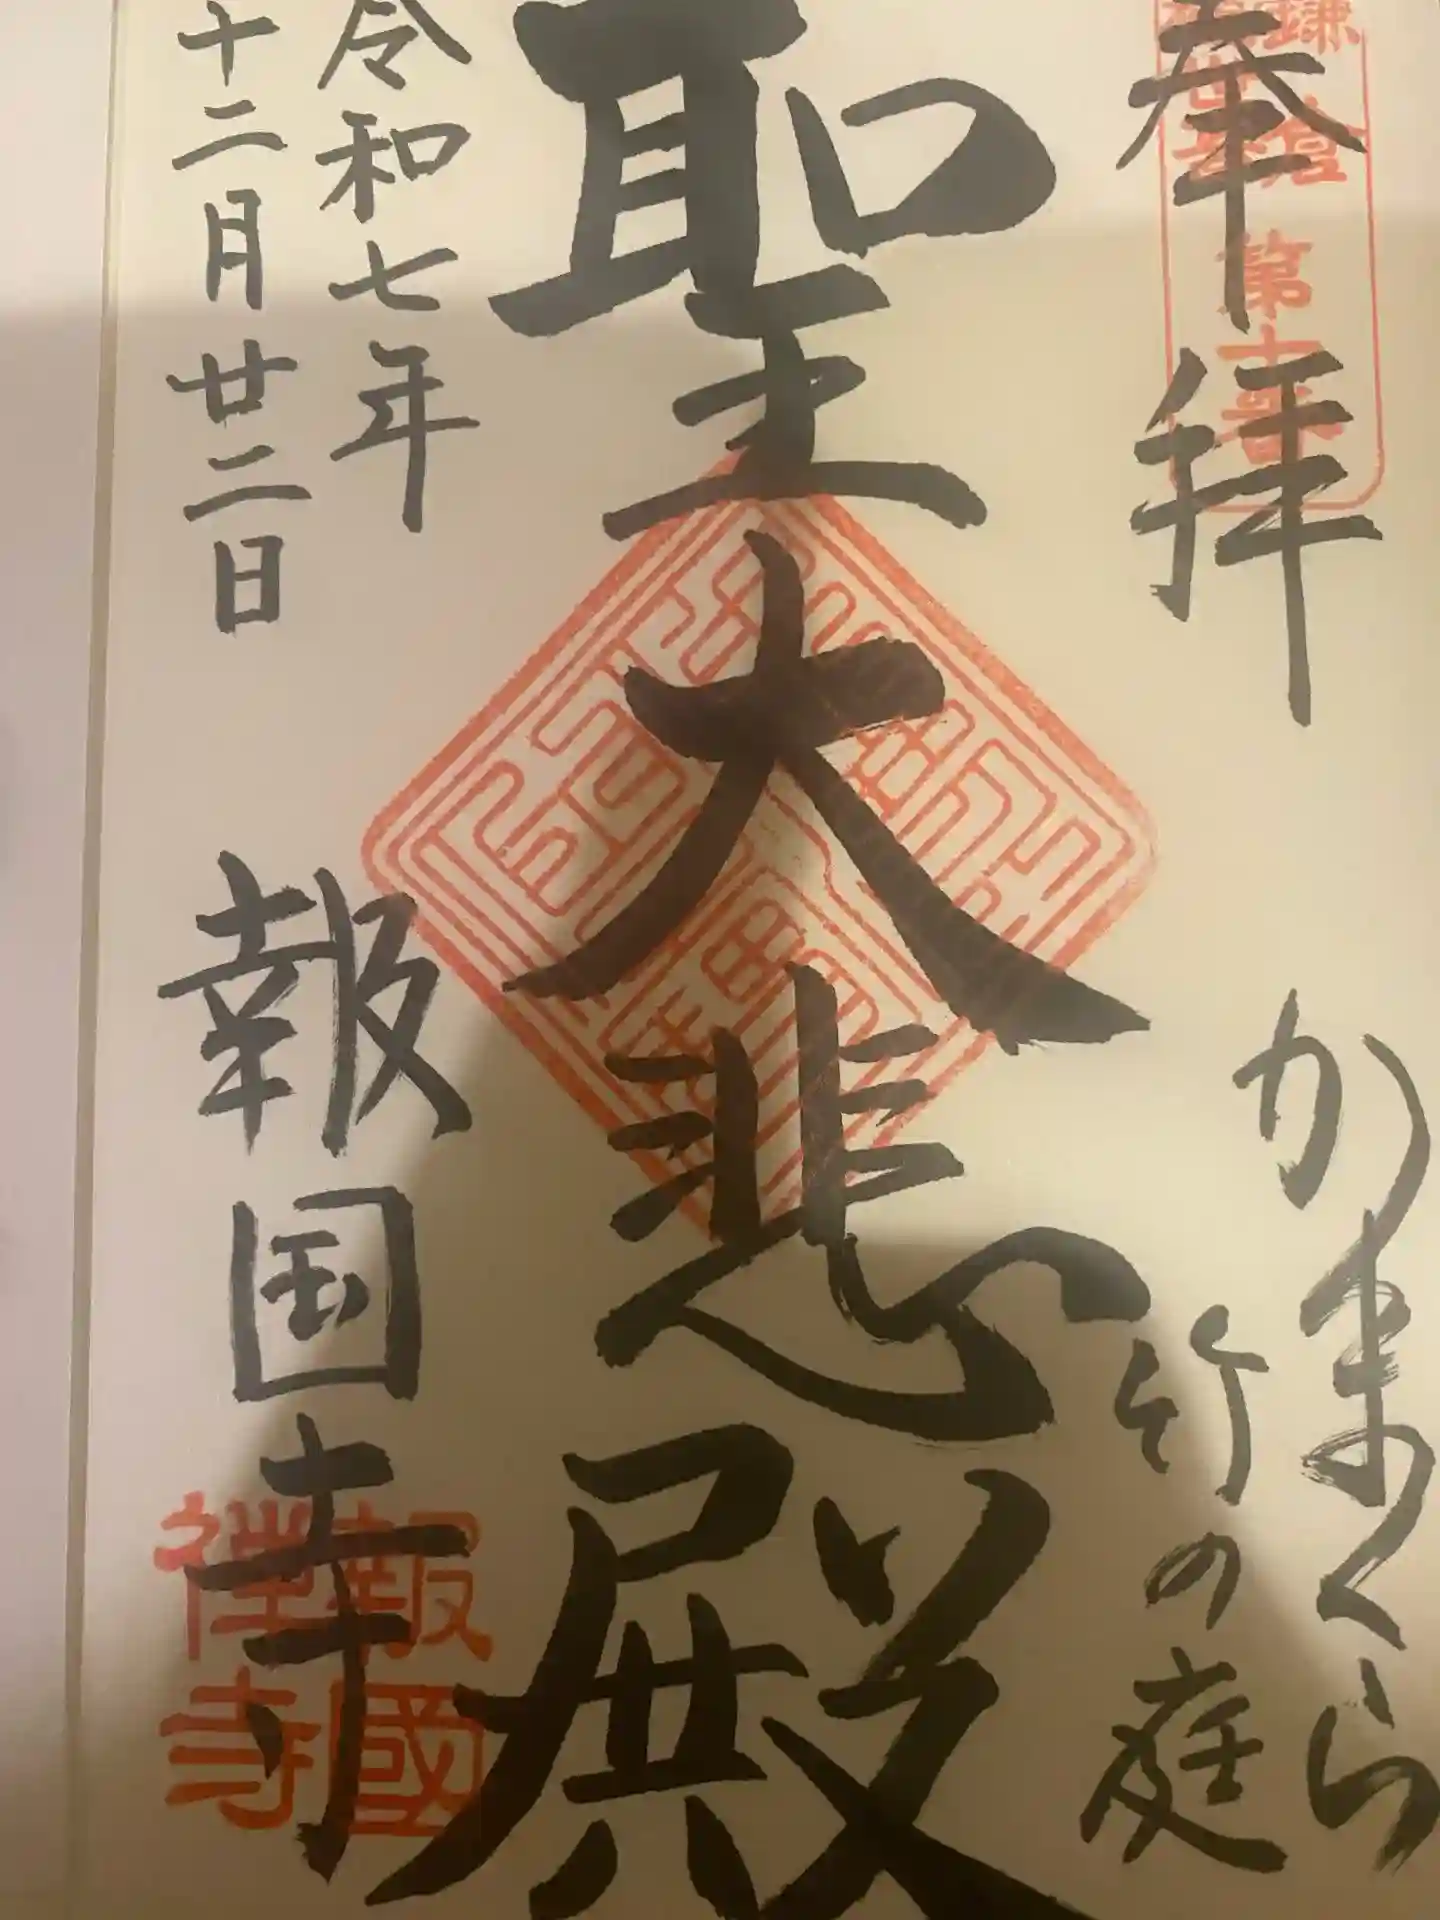 奉拝
かまくら
竹の庭
聖大悲殿
令和七年
十二月廿二日
報国寺
鎌倉
第十番
報國
禅寺